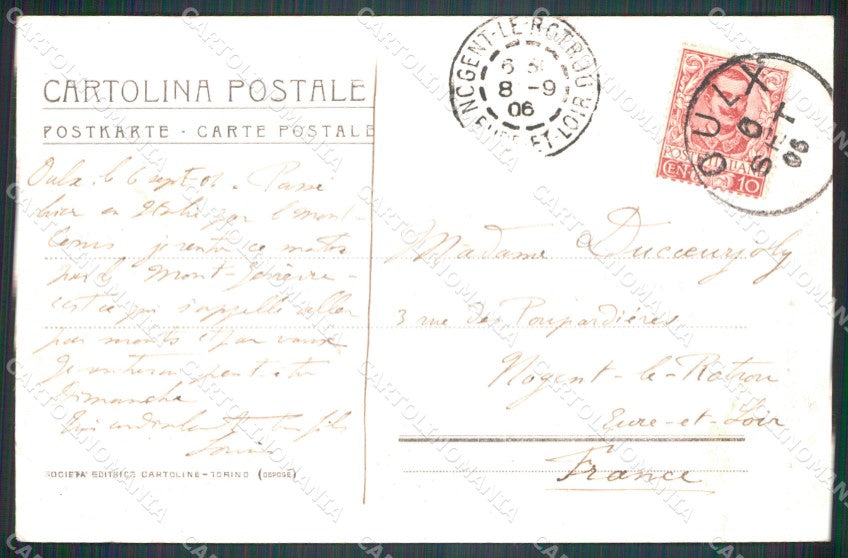 CARTOLINA POSTALE
POSTKARTE - CARTE POSTALE
Oulx le 6 sept 06. Passé
hier en Italie par le mont-
Cenis je rentre ce matin
par le Mont-Genèvre -
c'est ce qui s'appelle aller
par monts et par vaux
Je
Dimanche
ton fils
SOCIETA' EDITRICE CARTOLINE - TORINO (DEPOSE)
NOGENT-LE-ROTROU
8 - 9
06
EURE-ET-LOIR
OULX
6 SET
06
POSTE ITALIANE
CEN 10
Madame Ducoeurjoly
3 rue des Poupardières
Nogent-le-Rotrou
Eure-et-Loir
France
CARTOLINOMANIA